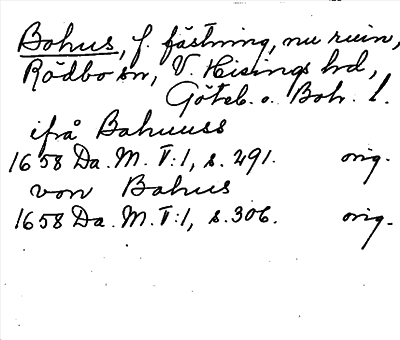 Bohus, f. fästning, nu ruin,
Rödbo sn, V. Hisings hd,
Göteb. o. Boh. l.
ifrå Bahuuss
1658 Da. M. T:1, s. 291. orig.
von Bahus
1658 Da. M. T:1, s. 306. orig.